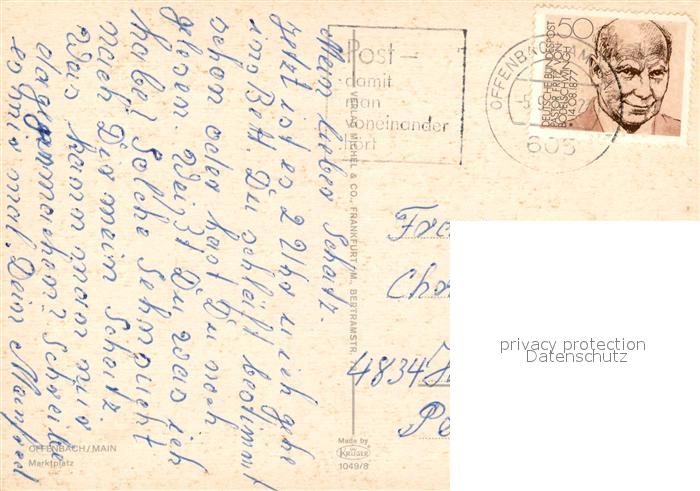 Mein lieber Schatz.
Jetzt ist es 2 Uhr u. ich gehe
ins Bett. Du schläfst bestimmt
schon oder hast Du noch
gelesen. Weißt Du, was ich
habe? Solche Sehnsucht
nach Dir mein Schatz
Was kann man nur
dagegen machen? Schreibe
es mir mal. Dein Manfred
OFFENBACH/MAIN
Marktplatz
VERLAG MICHEL & CO., FRANKFURT/M., BERTRAMSTR.
Made by
KRÜGER
1049/8
Post –
damit
man
voneinander
hört
OFFENBACH AM MAIN
605
50
DEUTSCHE BUNDESPOST
PASTOR FRITZ V.
BODELSCHWINGH
*14.08.1877
4834
privacy protection
Datenschutz